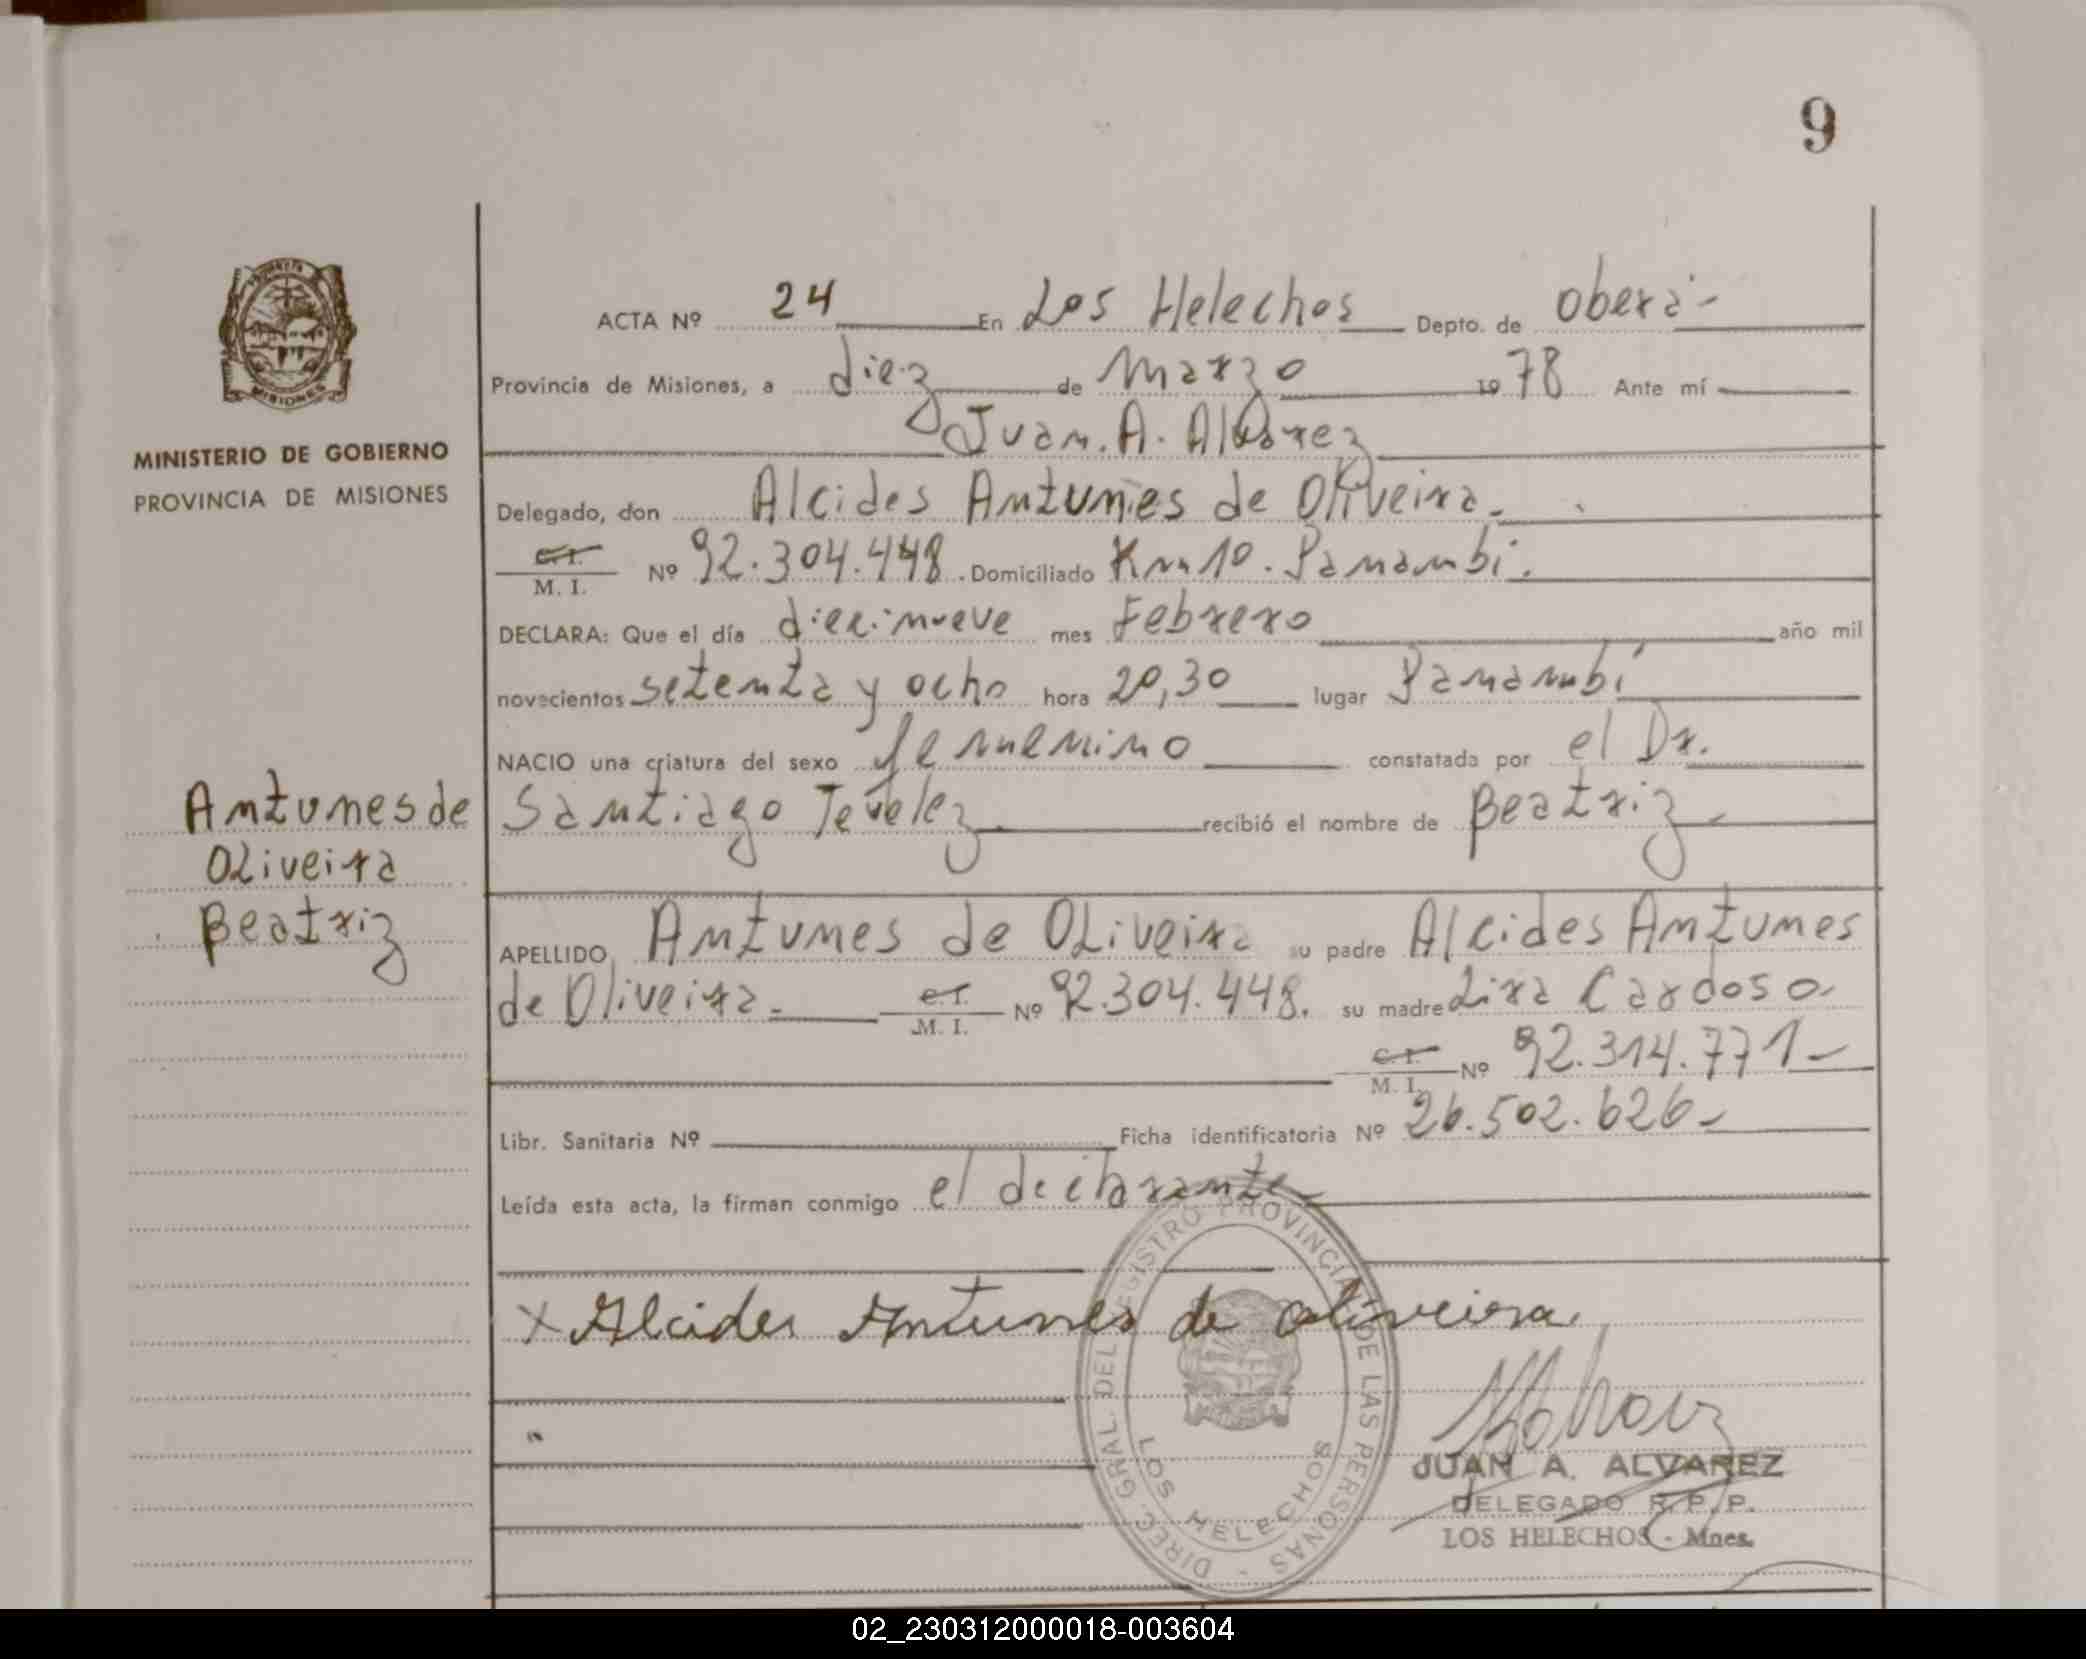 9
ACTA Nº 24 En Los Helechos Depto. de Oberá-
Provincia de Misiones, a diez de Marzo 1978 Ante mí
Juan. A. Alvarez
Delegado, don Alcides Antunes de Oliveira.
C. I.
M. I.
Nº 92.304.448. Domiciliado Km 10. Panambi.
DECLARA: Que el día diecinueve mes Febrero año mil
novecientos setenta y ocho hora 20,30 lugar Panambí
NACIO una criatura del sexo femenino constatada por el Dr.
Santiago Tevelez recibió el nombre de Beatriz
APELLIDO Antunes de Oliveira su padre Alcides Antunes
de Oliveira. C. I. Nº 92.304.448. su madre Lira Cardoso
M. I.
C. I. Nº 92.314.771-
M. I.
Libr. Sanitaria Nº Ficha identificatoria Nº 26.502.626-
Leída esta acta, la firman conmigo el declarante
X Alcides Antunes de Oliveira
JUAN A. ALVAREZ
DELEGADO R.P.P.
LOS HELECHOS - Mnes.
DIREC. GRAL. DEL REGISTRO PROVINCIAL DE LAS PERSONAS -
LOS HELECHOS
MISIONES
MINISTERIO DE GOBIERNO
PROVINCIA DE MISIONES
Antunes de
Oliveira
Beatriz
02_230312000018-003604